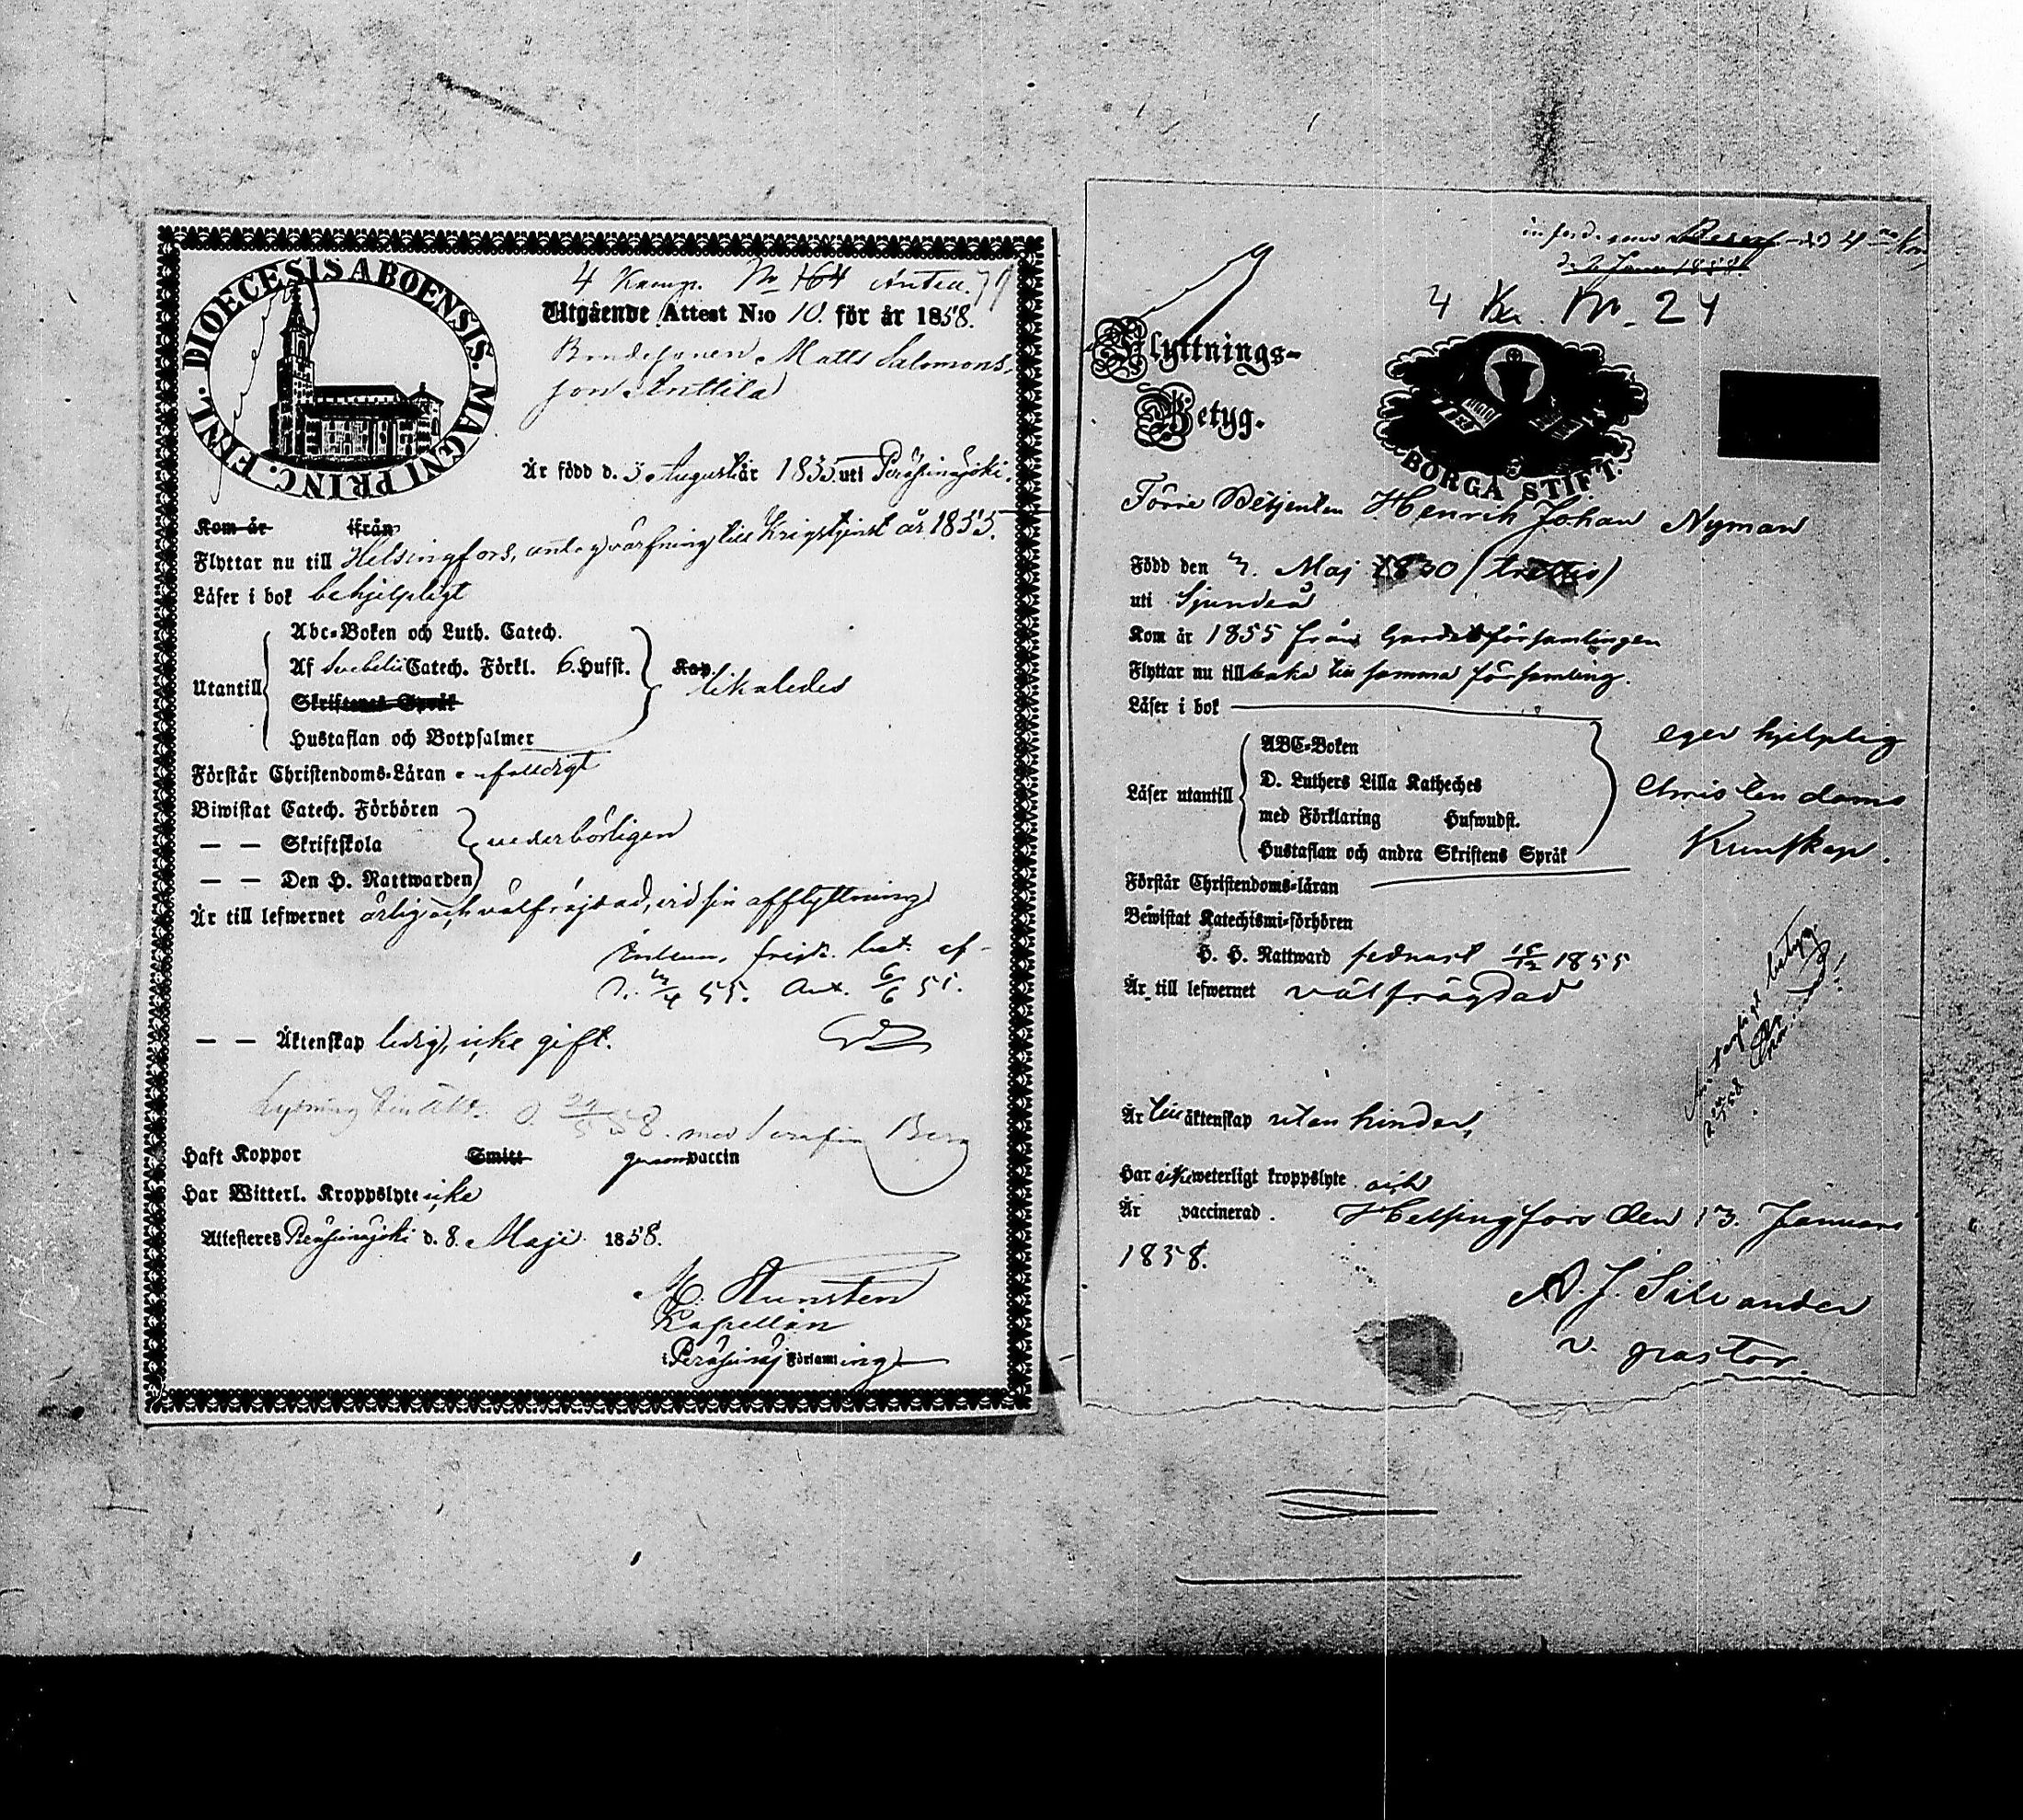 DIOECESIS ABOENSIS. MAGNI PRINC. FINL.
4 Komp. No 164 Antti
Utgående Attest N:o 10. för år 1858.
Bondesonen Matts Salomons-
son Anttila
Är född d. 3 Augusti år 1835 uti Peräseinäjoki.
Kom år ifrån
Flyttar nu till Helsingfors, enligt värfning till Krigstjenst år 1855.
Läser i bok behjelpligt
Utantill
Abc-Boken och Luth. Catech.
Af Svebelii Catech. Förkl. 6. Hufst.
Skriftenes Språk
Hustaflan och Botpsalmer
Kap.
likaledes
Förstår Christendoms-Läran enfalldigt
Biwistat Catech. Förhören
— — Skriftskola
— — Den H. Nattwarden
vederbörligen
Är till lefwernet ärlig och välfräjdad, vid sin afflyttning
55.
— — Äktenskap ledig, icke gift.
Lysning 58. med Serafia Berg
Haft Koppor Smitt genom vaccin
Har Witterl. Kroppslyte icke
Attesteres Peräseinäjoki d. 8. Maji 1858.
Kapellan
i Peräseinäj Församling
4 Ko. No. 24
Flyttnings-
Betyg.
BORGÅ STIFT.
Förre Betjenten Henrik Johan Nyman
Född den 3. Maj 1830 (trettio)
uti Sjundeå
Kom år 1855 från Gardesförsamlingen
Flyttar nu tillbaka till samma församling.
Läser i bok
Läser utantill
ABC-Boken
D. Luthers Lilla Katheches
med Förklaring Hufwudst.
Hustaflan och andra Skriftens Språk
eger hjelplig
Christendoms
Kunskap.
Förstår Christendoms-läran
Bewistat Katechismi-förhören
H. H. Nattward sednast 1855
Är till lefwernet välfrägdad
Är till äktenskap utan hinder,
Har icke weterligt kroppslyte och
Är vaccinerad. Helsingfors den 13. Januari
1858.
A. J. Silvander
v. pastor.